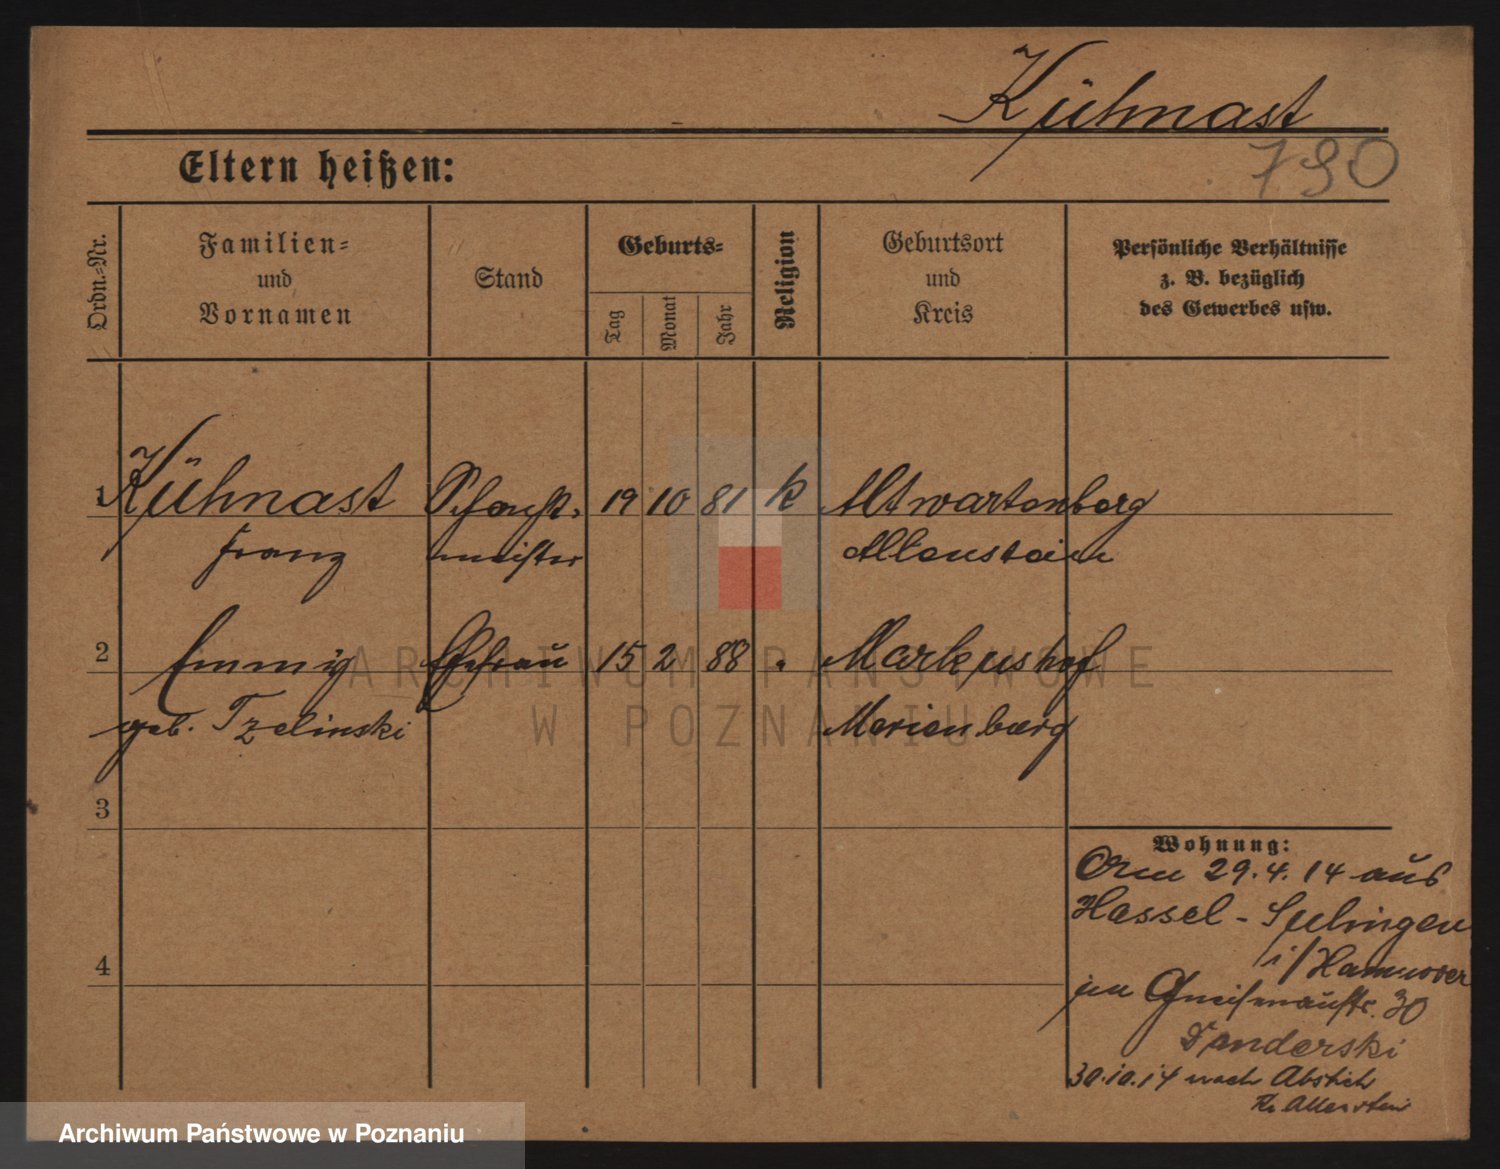 Kühnast
790
Eltern heißen:
Ordn.-Nr.
Familien-
und
Vornamen
Stand
Geburts-
Tag
Monat
Jahr
Religion
Geburtsort
und
Kreis
Persönliche Verhältnisse
z. B. bezüglich
des Gewerbes usw.
1 Kühnast 19 10 81 k Altwartenberg
Franz meister Allenstein
2 Emmy Ehefrau 15 2 88 " Markushof
geb. Tzelinski Marienburg
3
4
Wohnung:
Am 29.4.14 aus
Hassel-
i/Hannover
Gneisenaustr. 30
Danderski
30.10.14 nach Abstich
Kr. Allenstein
ARCHIWUM PAŃSTWOWE
W POZNANIU
Archiwum Państwowe w Poznaniu